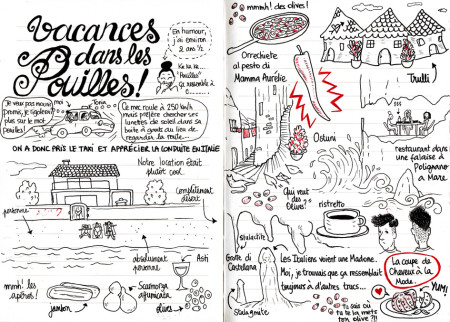 Vacances
dans les
Pouilles!
En humour,
j'ai environ
2 ans ½
"Pouilles"
ça ressemble à
Je veux pas mourir
Promis, je rigolerai
plus sur le mot
pouilles!
moi
Ce mec roule à 250 km/h
mais préfère chercher ses
lunettes de soleil dans sa
boîte à gants au lieu de
regarder la route...
ON A DONC PRIS LE TAXI ET APPRÉCIER LA CONDUITE EN ITALIE
Notre location était
plutôt cool
complètement
désert
personne
absolument
personne
Asti
mmh! les
apéros!
jambon
Scamorza
affumicata
olives
mmmh! des olives!
Orrechiette
al pesto di
Mamma Aurélie.
Trulli
Ostuni
restaurant dans
une falaise à
Polignano
a Mare
Qui veut
des
Olives!
ristretto
Stalactite
Grotte di
Castelana
Stalagmite
Les Italiens virent une Madone.
Moi, je trouvais que ça ressemblait
toujours à d'autres trucs...
La coupe de
Cheveux à la
Mode.
YUM!
Tu sais où
tu te la mets
ton olive?!